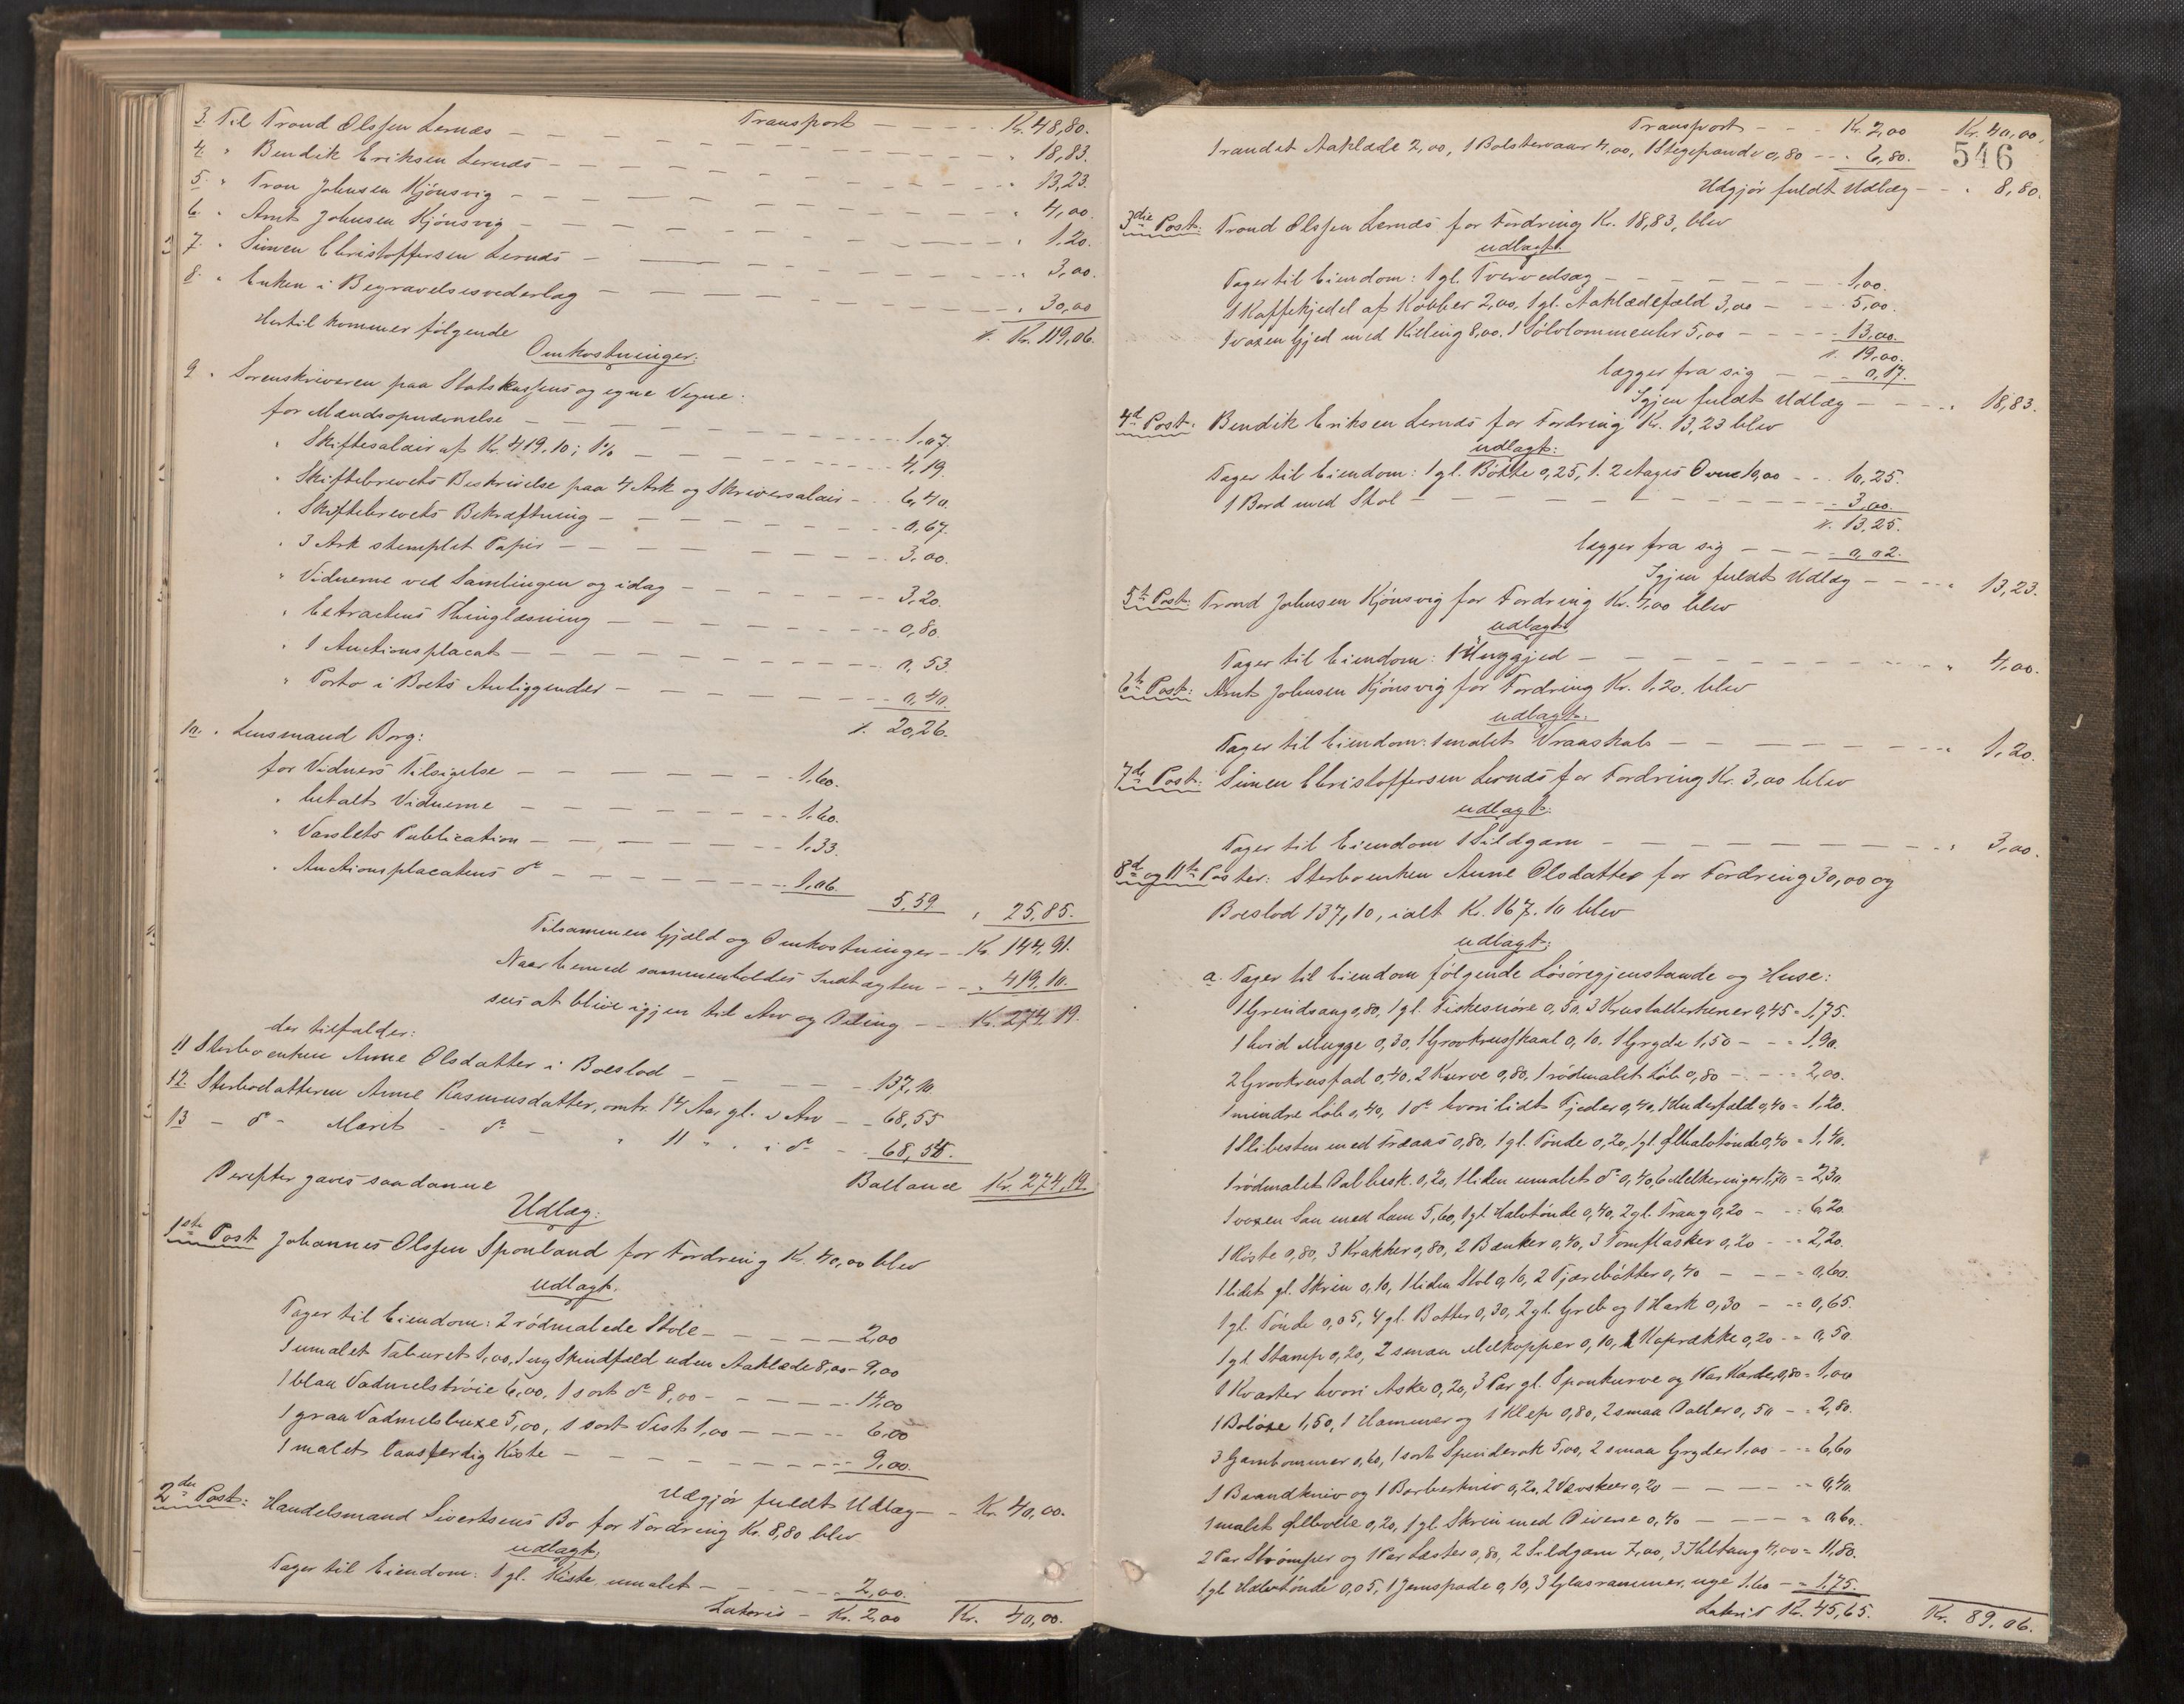 Transport - - - - Kr. 48,80.
3. Til Trond Olssen Lernæs - - - " 18,83.
4. " Bendik Eriksen Lernæs - - - " 13,23.
5. " Tron Johnsen Kjönsvig - - - " 4,00.
6. " Arnt Johnsen Kjönsvig - - - " 1,20.
7. " Simen Christoffersen Lernæs - - - " 3,00.
8. " Enken i Begravelsesvederlag - - - " 30,00
Hertil kommer følgende
Kr. 119,06.
Omkostninger:
9. " Sorenskriveren paa Statskassens og egne Vegne:
for Mændsopnævnelse - - - 1.07.
" Skiftesalair af Kr. 419.10; 1% - - - 4,19.
" Skiftebrevets Beskrivelse paa 4 Ark og Skriversalair - - 6,40.
" Skiftebrevets Bekræftning - - - 0,67.
" 3 Ark stemplet Papir - - - 3,00.
" Vidnerne ved Samlingen og idag - - - 3,20.
" Extractens Thinglæsning - - - 0,80.
" 1 Auctionsplacat - - - 0,53
" Porto i Boets Anliggender - - - 0,40.
20,26.
10. " Lensmand Borg:
for Vidners Tilsigelse - - - 1.60.
" betalt Vidnerne - - - 1.60.
" Varslets Publication - - - 1.33.
" Auctionsplacatens do - - - 1,06. 5,59 " 25,85.
Tilsammen Gjæld og Omkostninger - Kr. 144,91.
Naar hermed sammenholdes Indtægten - - " 419,10.
sees at blive igjen til Arv og Deling - - Kr. 274,19.
der tilfalder:
11 Sterboenken Anne Olsdatter i Boeslod - - - 137,10.
12. Sterbodatteren Anne Rasmusdatter, omtr. 14 Aar gl. i Arv - - 68,55
13 - do - Marit - do - " 11 " " i do - - 68,54.
Ballance Kr. 274,19.
Derefter gaves saadanne
Udlæg:
1ste Post Johannes Olssen Sponland for Fordring Kr. 40,00 blev
udlagt.
Tager til Eiendom: 2 rödmalede Stole - - - 2,00
1 umalet Taburet 1,00, 1 ny Skindfeld uden Aaklæde 8,00 - 9,00
1 blaa Vadmelströie 6,00, 1 sort do 8,00 - - - 14,00
1 graa Vadmelsbuxe 5,00, 1 sort Vest 1,00 - - - 6,00
1 malet Kiste - - - 9,00.
Udgjör fuldt Udlæg - - Kr. 40,00.
2den Post: Handelsmand Sivertsens Bo for Fordring Kr. 8,80 blev
udlagt:
Tager til Eiendom: 1 gl. Kiste, umalet - - - 2,00.
Lateris - Kr. 2,00 Kr. 40,00.
Transport - - - Kr. 2,00 Kr. 40,00.
546
1 randet Aaklæde 2,00, 1 Bolstervaar 4,00, 1 Stegepande 0,80 - - " 6,80.
Udgjör fuldt Udlæg - - " 8,80.
3die Post: Trond Olssen Lernæs for Fordring Kr. 18,83, blev
udlagt.
Tager til Eiendom: 1 gl. Tvervedsag - - - 1,00.
1 Kaffekjedel af Kobber 2,00, 1 gl. Aaklædefæld 3,00 - - - 5,00.
1 voxen Gjed med Killing 8,00. 1 Sölvlommeuhr 5,00 - - - 13,00.
19,00.
lægger fra sig - - - 0,17.
Igjen fuldt Udlæg - - - " 18,83.
4de Post: Bendik Eriksen Lernæs for Fordring Kr. 13,23 blev
udlagt:
Tager til Eiendom: 1 gl. Bötte 0,25, 1. 2 etages Ovn 10,00 - - - 10,25.
1 Bord med Stol - - - 3,00.
13,25.
lægger fra sig - - - 0,02.
Igjen fuldt Udlæg - - - " 13,23.
5te Post: Trond Johnsen Kjönsvig for Fordring Kr. 4,00 blev
udlagt
Tager til Eiendom: 1 Unggjed - - - " 4,00.
6te Post: Arnt Johnsen Kjönsvig for Fordring Kr. 1,20. blev
udlagt:
Tager til Eiendom: 1 malet Vraaskab - - - " 1,20.
7de Post: Simen Christoffersen Lernæs for Fordring Kr. 3,00 blev
udlagt:
Tager til Eiendom 1 Sildgarn - - - " 3,00.
8de og 11te Poster: Sterboenken Anne Olsdatter for Fordring 30,00 og
Boeslod 137,10, ialt Kr. 167.10 blev
udlagt:
a. Tager til Eiendom følgende Lösöregjenstande og Huse:
1 Grindsaug 0,80, 1 gl. Fiskesnöre 0,50. 3 0,45 = 1,75.
1 hvid Mugge 0,30, 1 Grovkrusskaal 0,10. 1 Gryde 1,50 - - = 1,90.
2 Grovkrusfad 0,40, 2 Kurve 0,80, 1 rödmalet Löb 0,80 - - - 2,00.
1 mindre Löb 0,40, 1 do hvori lidt Fjeder 0,40, 1 Underfæld 0,40 = 1,20.
1 Slibesten med Træaas 0,80, 1 gl. Tönde 0,20, 1 gl. Ølhalvtönde 0,40 = 1,40.
1 rödmalet Dalbesk. 0,20, 1 liden umalet do 0,40, 6 Melkeringer 1,70 = 2,30
1 voxen Sau med Lam 5,60, 1 gl. Halvtönde 0,40, 2 gl. Traug 0,20 - - = 6,20.
1 Kiste 0,80, 3 Krakker 0,80, 2 Bænker 0,40, 3 Tomflasker 0,20 - - = 2,20.
1 lidet gl. Skrin 0,10, 1 liden Stol 0,10, 2 Tjærebötter 0,40 - - - = 0,60.
1 gl. Tönde 0,05, 4 gl. Bötter 0,30, 2 gl. Greb og 1 Hark 0,30 - - = 0,65.
1 gl. Stamp 0,20, 2 smaa Melkopper 0,10, 1 Koprække 0,20 - = 0,50
1 Kvarter hvori Aske 0,20, 3 Par gl. Sponkurve og 1 Par Karder 0,80 = 1,00
1 Bolöxe 1,50, 1 Hammer og 1 Klep 0,80, 2 smaa Daller 0,50 - = 2,80.
3 Garnbommer 0,60, 1 sort Spinderok 5,00, 2 smaa Gryder 1,00 - = 6,60
1 Baandkniv og 1 Barberkniv 0,20, 2 Vævskeer 0,20 - - - = 0,40
1 malet Ølbolle 0,20, 1 gl. Skrin med Diverse 0,40 - - - = 0,60.
2 Par Strömper og 1 Par Læster 0,80, 2 Sildgarn 7,00, 3 4,00 = 11,80.
1 gl. Halvtönde 0,05, 1 Jernspade 0,10, 3 Glasrammer, nye 1.60 - = 1,75.
Lateris Kr. 45,65. Kr. 89,06.